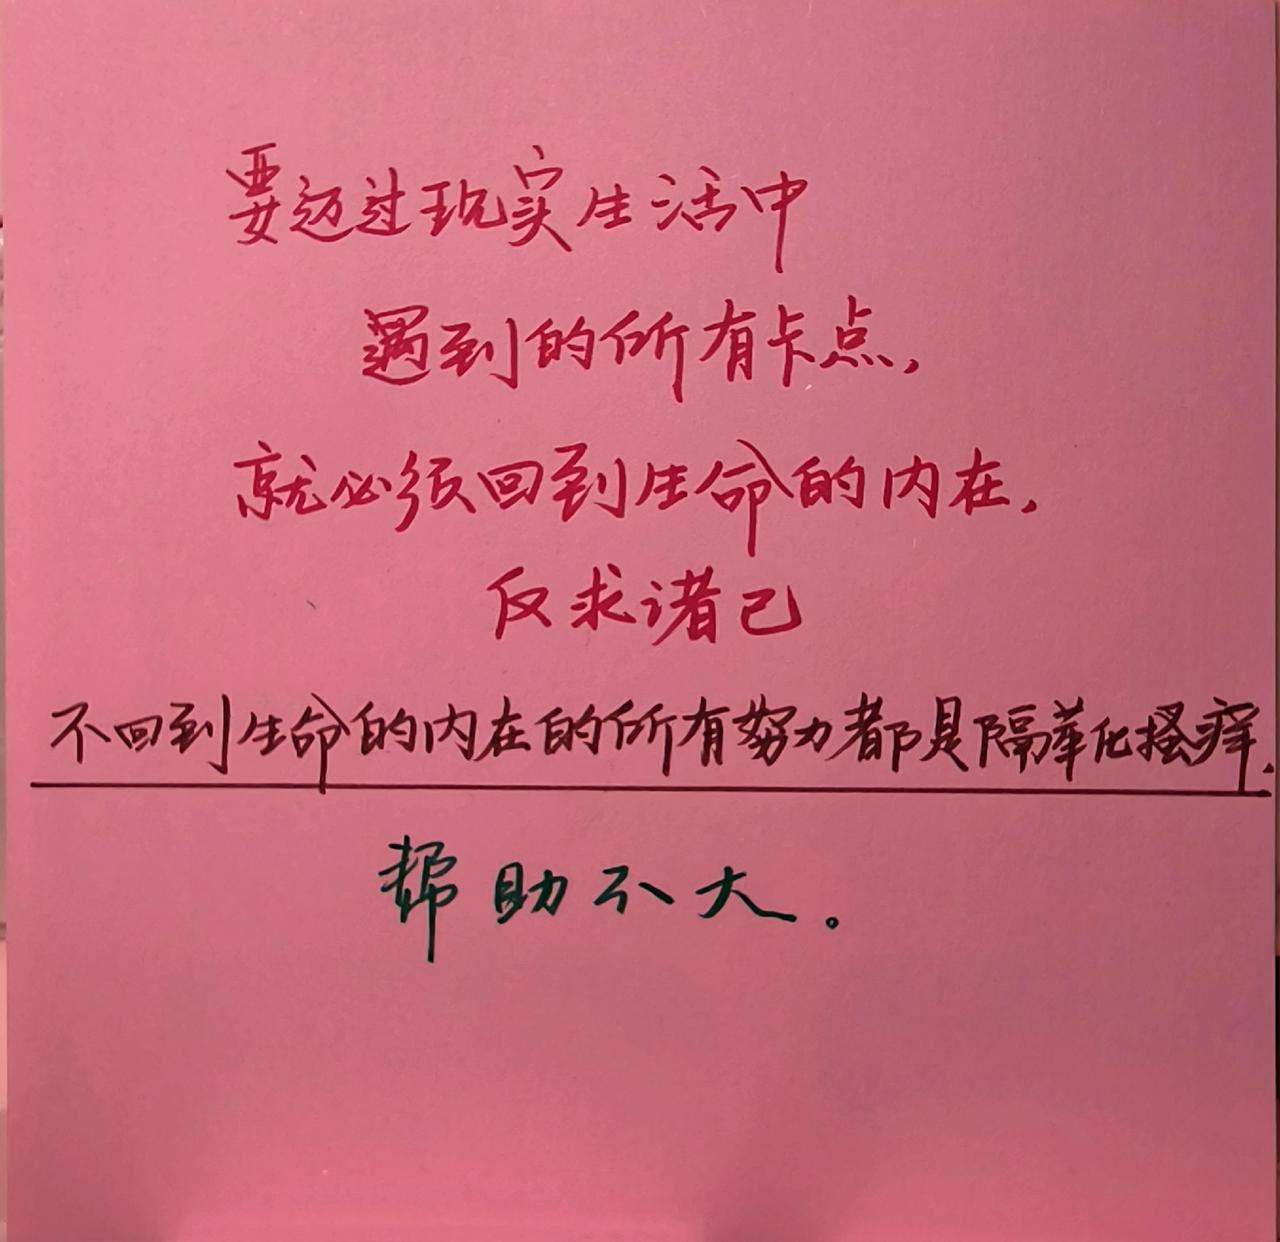 要迈过现实生活中
遇到的所有卡点，
就必须回到生命的内在，
反求诸己
不回到生命的内在的所有努力都是隔靴搔痒，
帮助不大。